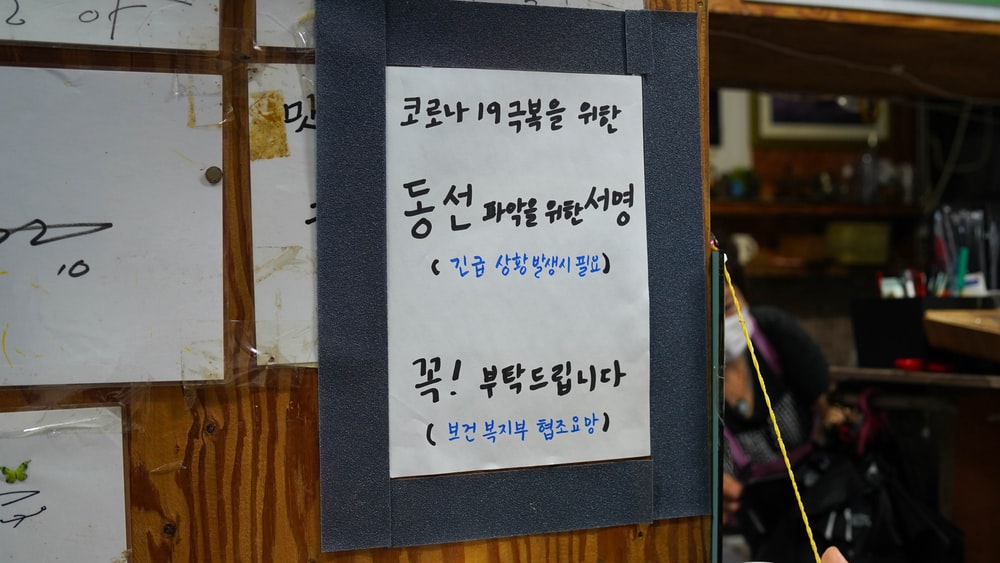 코로나 19 극복을 위한
동선 파악을 위한 서명
( 긴급 상황 발생시 필요)
꼭! 부탁드립니다
( 보건 복지부 협조요망)
10